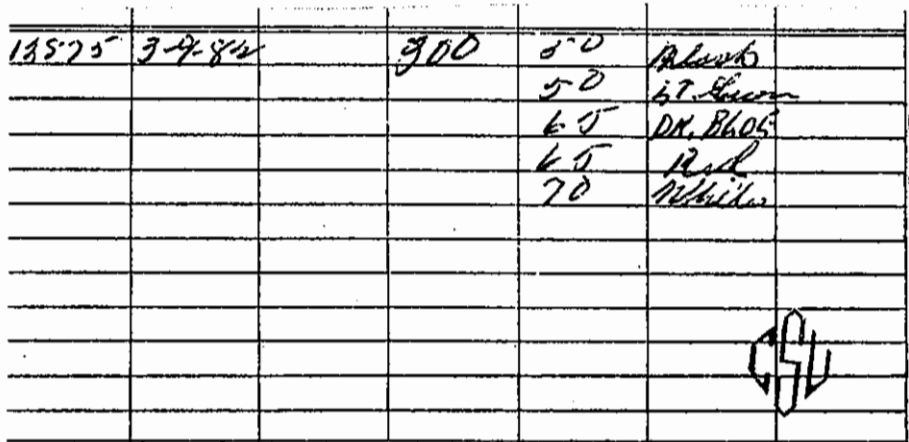 13575 3-9-82 300 50 Black
50 LT Green
65 DK. BLUE
65 Red
70 White
CSU